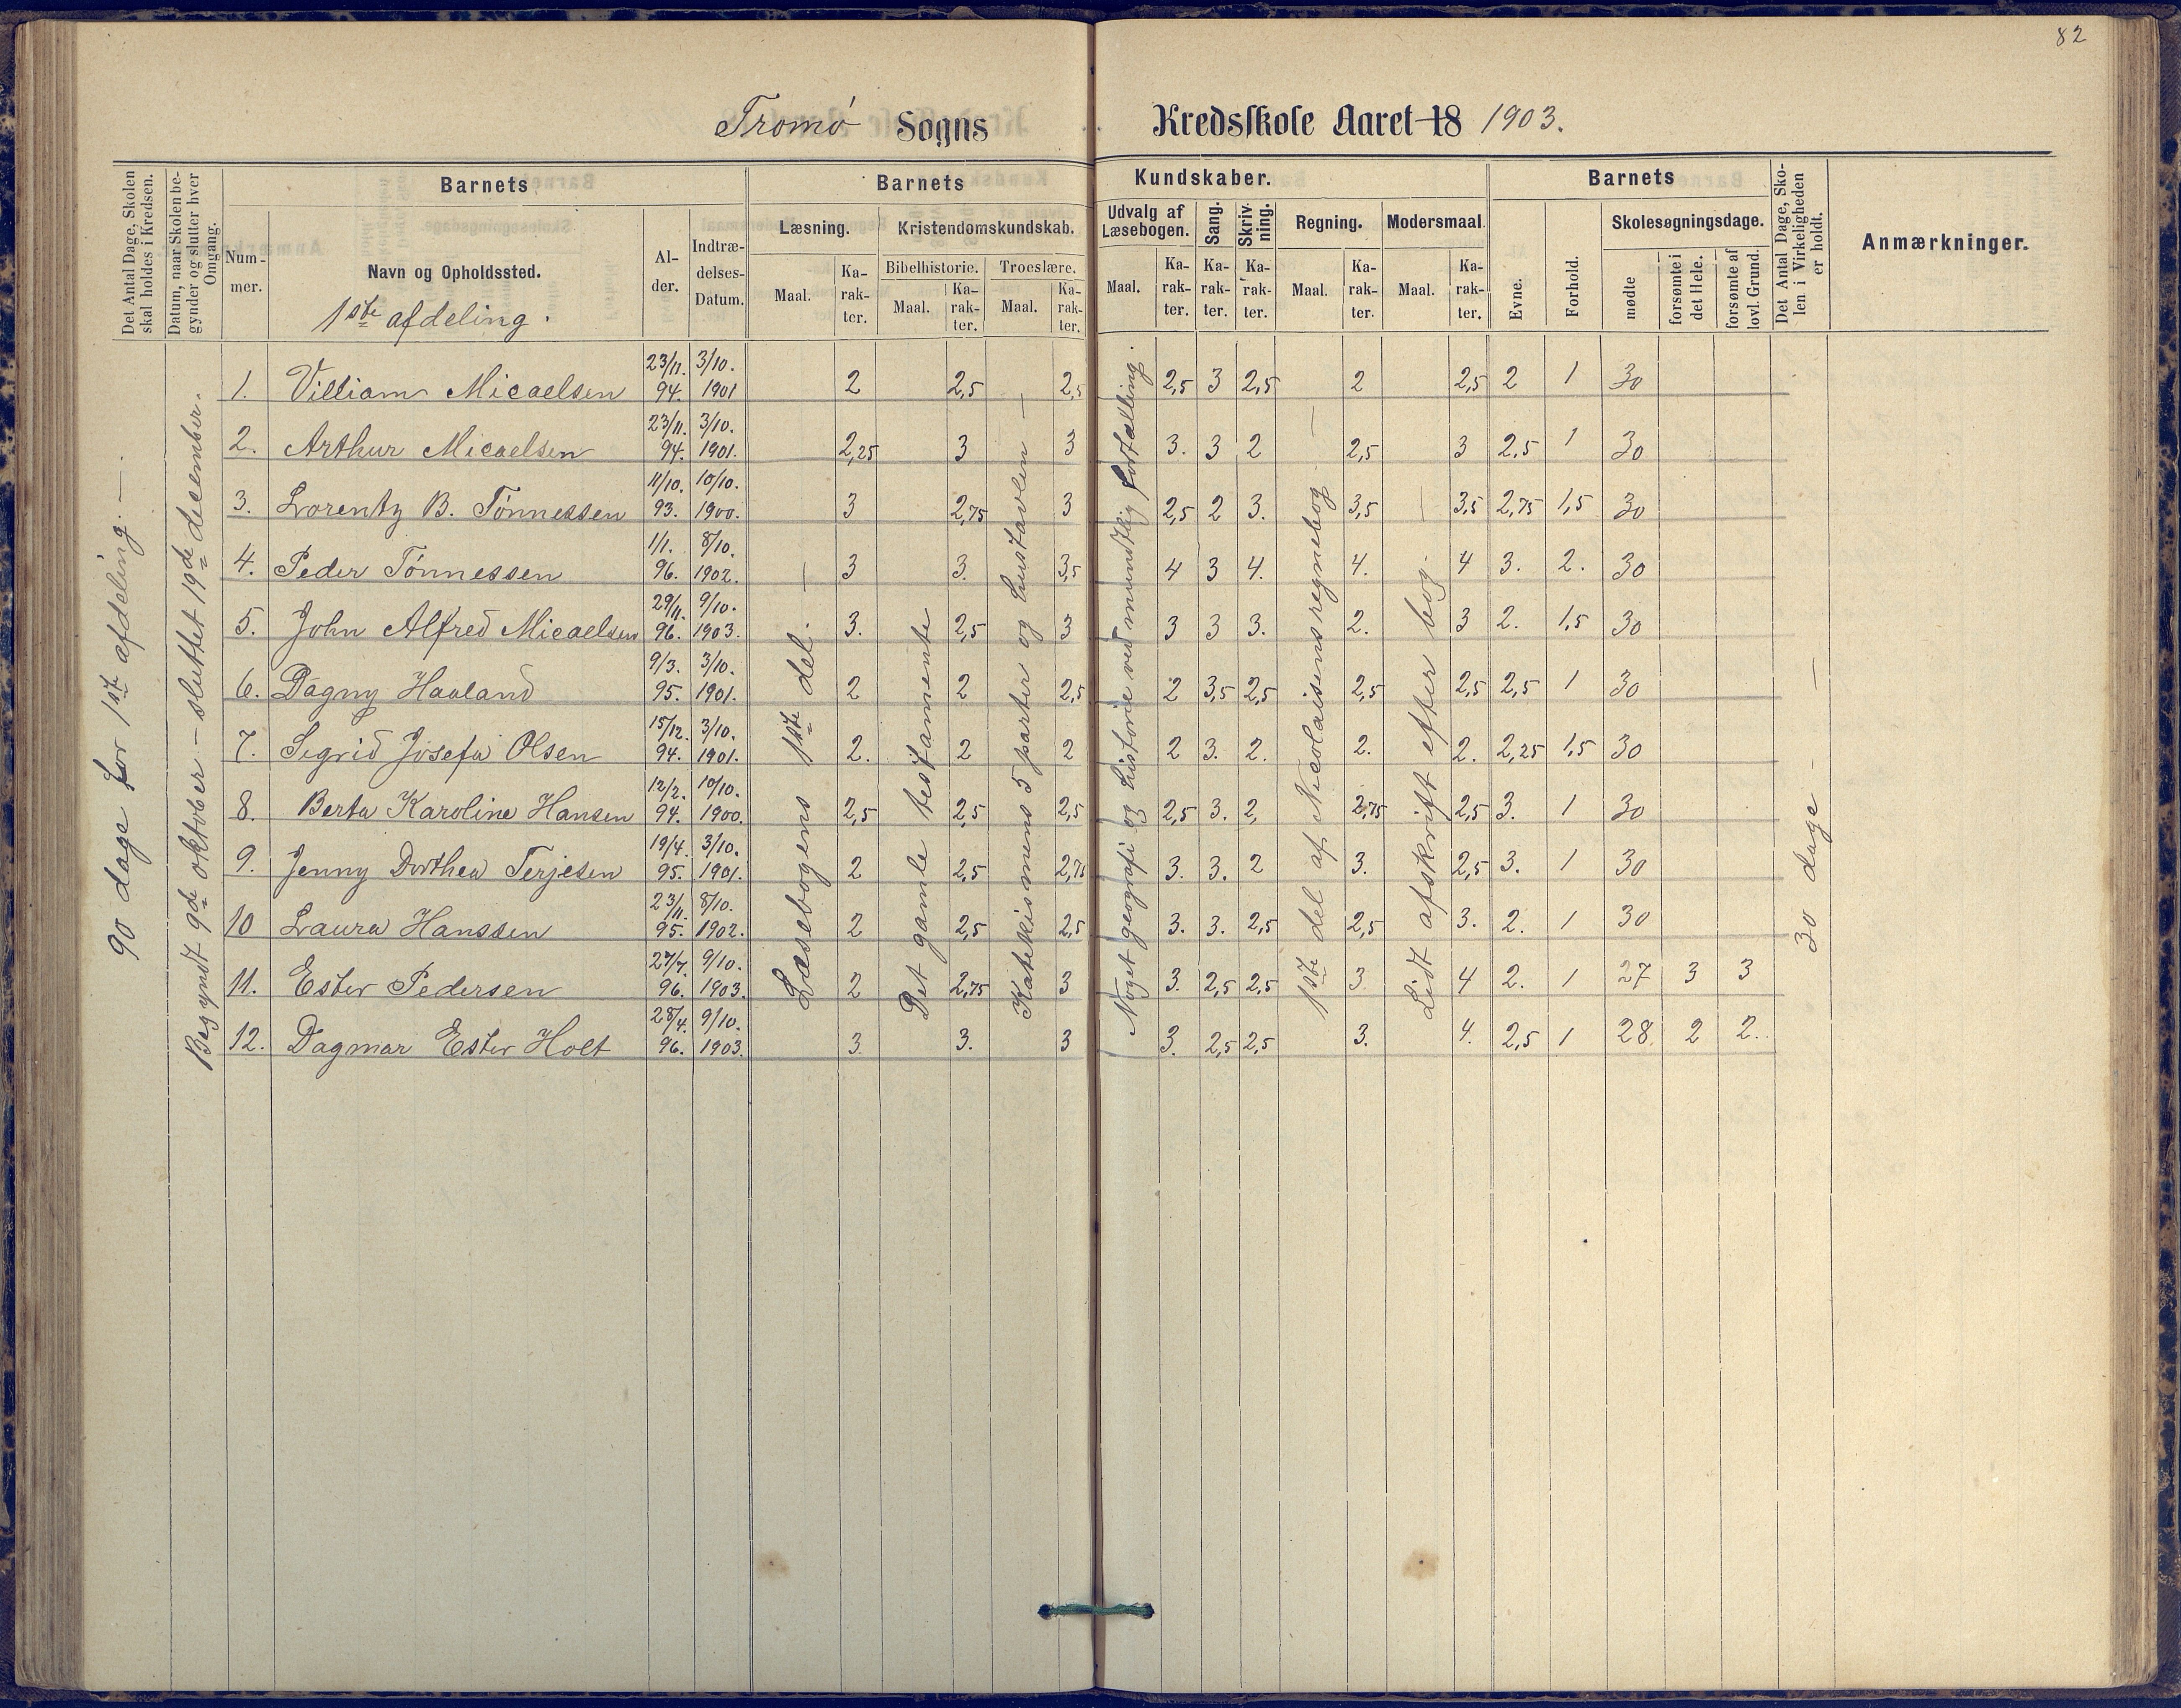 82
Tromø Sogns Kredsskole Aaret 18 1903.
Det Antal Dage, Skolen skal holdes i Kredsen.
Datum, naar Skolen begynder og slutter hver Omgang.
Barnets
Nummer.
Navn og Opholdssted.
1ste afdeling.
Alder.
Indtrædelses-Datum.
Barnets Kundskaber.
Læsning.
Maal. Karakter.
Kristendomskundskab.
Bibelhistorie. Troeslære.
Maal. Karakter. Maal. Karakter.
Udvalg af Læsebogen.
Maal. Karakter.
Sang. Karakter.
Skrivning. Karakter.
Regning.
Maal. Karakter.
Modersmaal
Maal. Karakter.
Barnets
Evne. Forhold.
Skolesøgningsdage.
mødte
forsømte i det Hele.
forsømte af lovl. Grund.
Det Antal Dage, Skolen i Virkeligheden er holdt.
Anmærkninger.
90 dage for 1ste afdeling. —
Begyndt 9de oktober – sluttet 19de december.
Læsebogens 1ste del. —
Det gamle testamente
Katekismens 5 parter og hustavlen —
Noget geografi og historie ved mundtlig fortælling.
1ste del af Nicolaisens regnebog —
Lidt afskrift efter bog. —
30 dage - —
1. Villiam Micaelsen 23/11. 94. 3/10. 1901 2 2,5 2,5 2,5 3 2,5 2 2,5 2 1 30
2. Arthur Micaelsen 23/11. 94. 3/10. 1901. 2,25 3 3 3. 3 2 2,5 3 2,5 1 30
3. Lorentz B. Tønnessen 11/10. 93. 10/10. 1900. 3 2,75 3 2,5 2 3. 3,5 3,5 2,75 1,5 30
4. Peder Tønnessen 1/1. 96. 8/10. 1902. 3 3. 3,5 4 3 4. 4. 4 3. 2. 30
5. John Alfred Micaelsen 29/11. 96. 9/10. 1903. 3. 2,5 3 3 3 3. 2. 3 2. 1,5 30
6. Dagny Haaland 9/3. 95. 3/10. 1901. 2 2 2,5 2 3,5 2,5 2,5 2,5 2,5 1 30
7. Sigrid Josefa Olsen 15/12. 94. 3/10. 1901. 2. 2 2 2 3. 2. 2. 2. 2,25 1,5 30
8. Berta Karoline Hansen 12/2. 94. 10/10. 1900. 2,5 2,5 2,5 2,5 3. 2, 2,75 2,5 3. 1 30
9. Jenny Dorthea Terjesen 19/4. 95. 3/10. 1901. 2 2,5 2,75 3. 3. 2 3. 2,5 3. 1 30
10 Laura Hanssen 23/11. 95. 8/10. 1902. 2 2,5 2,5 3. 3. 2,5 2,5 3. 2. 1 30
11. Ester Pedersen 27/7. 96. 9/10. 1903. 2 2,75 3 3. 2,5 2,5 3. 4 2. 1 27 3 3
12. Dagmar Ester Holt 28/4. 96. 9/10. 1903. 3. 3. 3 3. 2,5 2,5 3. 4. 2,5 1 28. 2 2.